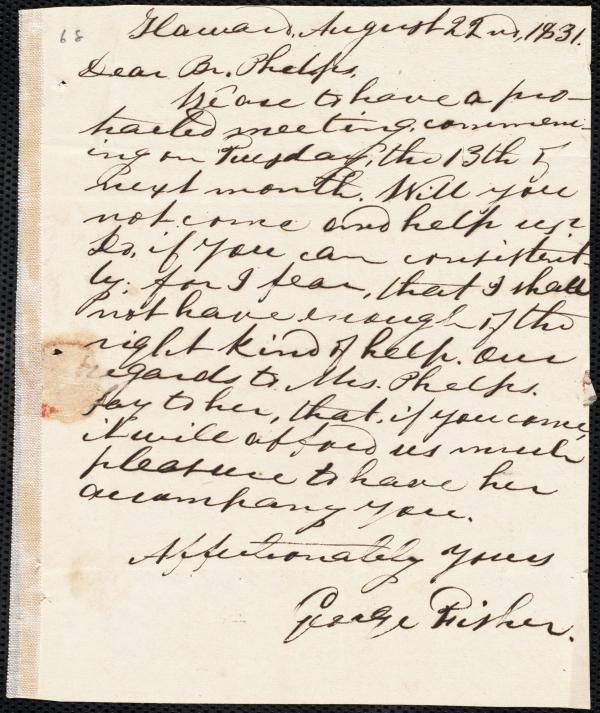 68
Harvard, August 22nd, 1831.
Dear Br. Phelps,
We are to have a pro-
tracted meeting, commenc-
ing on Tuesday, the 13th of
next month. Will you
not come and help us?
Do, if you can consistent-
ly; for I fear, that I shall
not have enough of the
right kind of help. Our
regards to Mrs. Phelps.
Say to her, that, if you come,
it will afford us much
pleasure to have her
accompany you.
Affectionately yours
George Fisher.